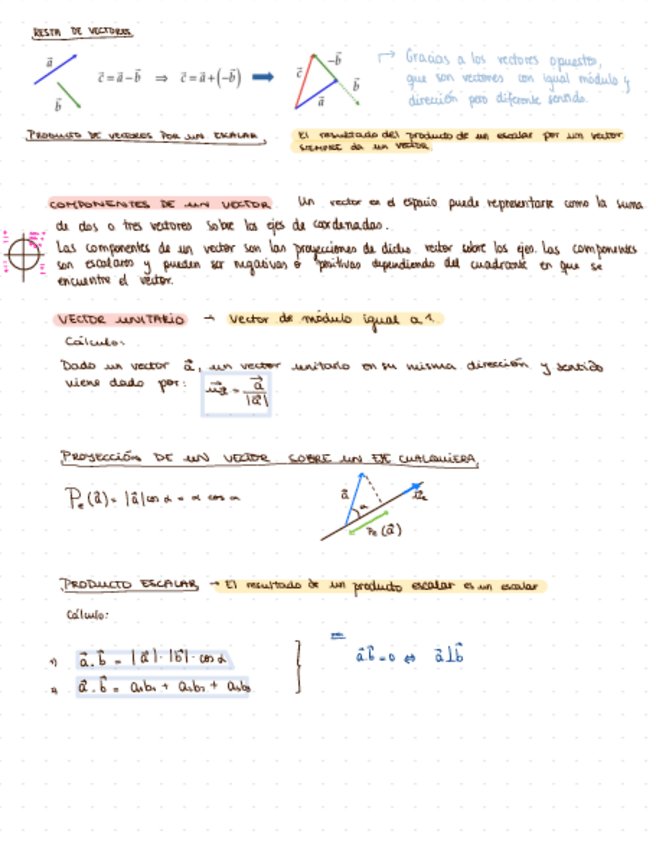 RESTA DE VECTORES
a⃗
b⃗
c⃗ = a⃗ − b⃗ ⇒ c⃗ = a⃗ + (−b⃗)
c⃗
−b⃗
b⃗
a⃗
Gracias a los vectores opuestos,
que son vectores con igual módulo y
dirección pero diferente sentido.
PRODUCTO DE VECTORES POR UN ESCALAR.
El resultado del producto de un escalar por un vector
SIEMPRE da un VECTOR.
COMPONENTES DE UN VECTOR. Un vector en el espacio puede representarse como la suma
de dos o tres vectores sobre los ejes de coordenadas.
Las componentes de un vector son las proyecciones de dicho vector sobre los ejes. Las componentes
son escalares y pueden ser negativas o positivas dependiendo del cuadrante en que se
encuentre el vector.
VECTOR UNITARIO → vector de módulo igual a 1.
Cálculo:
Dado un vector a⃗, un vector unitario en su misma dirección y sentido
viene dado por: u⃗a = a⃗ / |a⃗|
PROYECCIÓN DE UN VECTOR SOBRE UN EJE CUALQUIERA.
Pe(a⃗) = |a⃗| cos α = α cos α
a⃗
α
Pe(a⃗)
PRODUCTO ESCALAR → El resultado de un producto escalar es un escalar
Cálculo:
1) a⃗ · b⃗ = |a⃗| · |b⃗| · cos α
a⃗ · b⃗ =
a⃗ b⃗ = 0 ⇔ a⃗ ⊥ b⃗